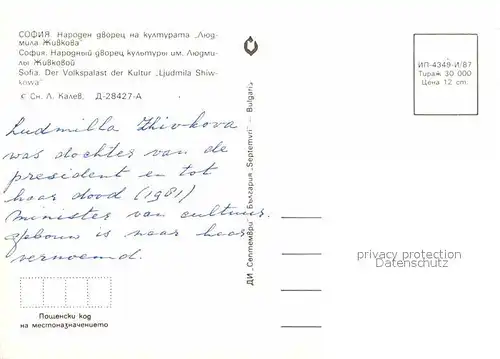 СОФИЯ. Народен дворец на културата „Люд-
мила Живкова"
София. Народный дворец культуры им. Людми-
лы Живковой
Sofia. Der Volkspalast der Kultur „Ljudmila Shiw-
kowa"
© Сн. Л. Калев. Д-28427-А
Ludmilla Zhivkova
was dochter van de
president en tot
haar dood (1981)
minister van cultuur.
gebouw is naar haar
vernoemd.
Пощенски код
на местоназначението
ДИ „Септември" — България „Septemvri" — Bulgaria
ИП-4349-И/87
Тираж 30 000
Цена 12 ст.
privacy protection
Datenschutz